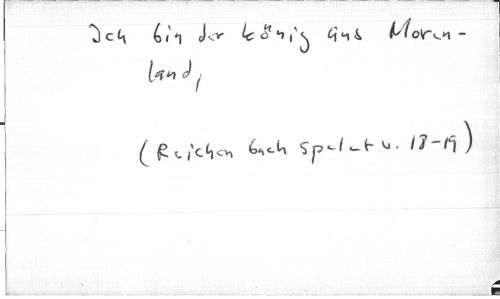 Ich bin der König aus Moren-
land,
(Reichenbach spalat v. 18-19)